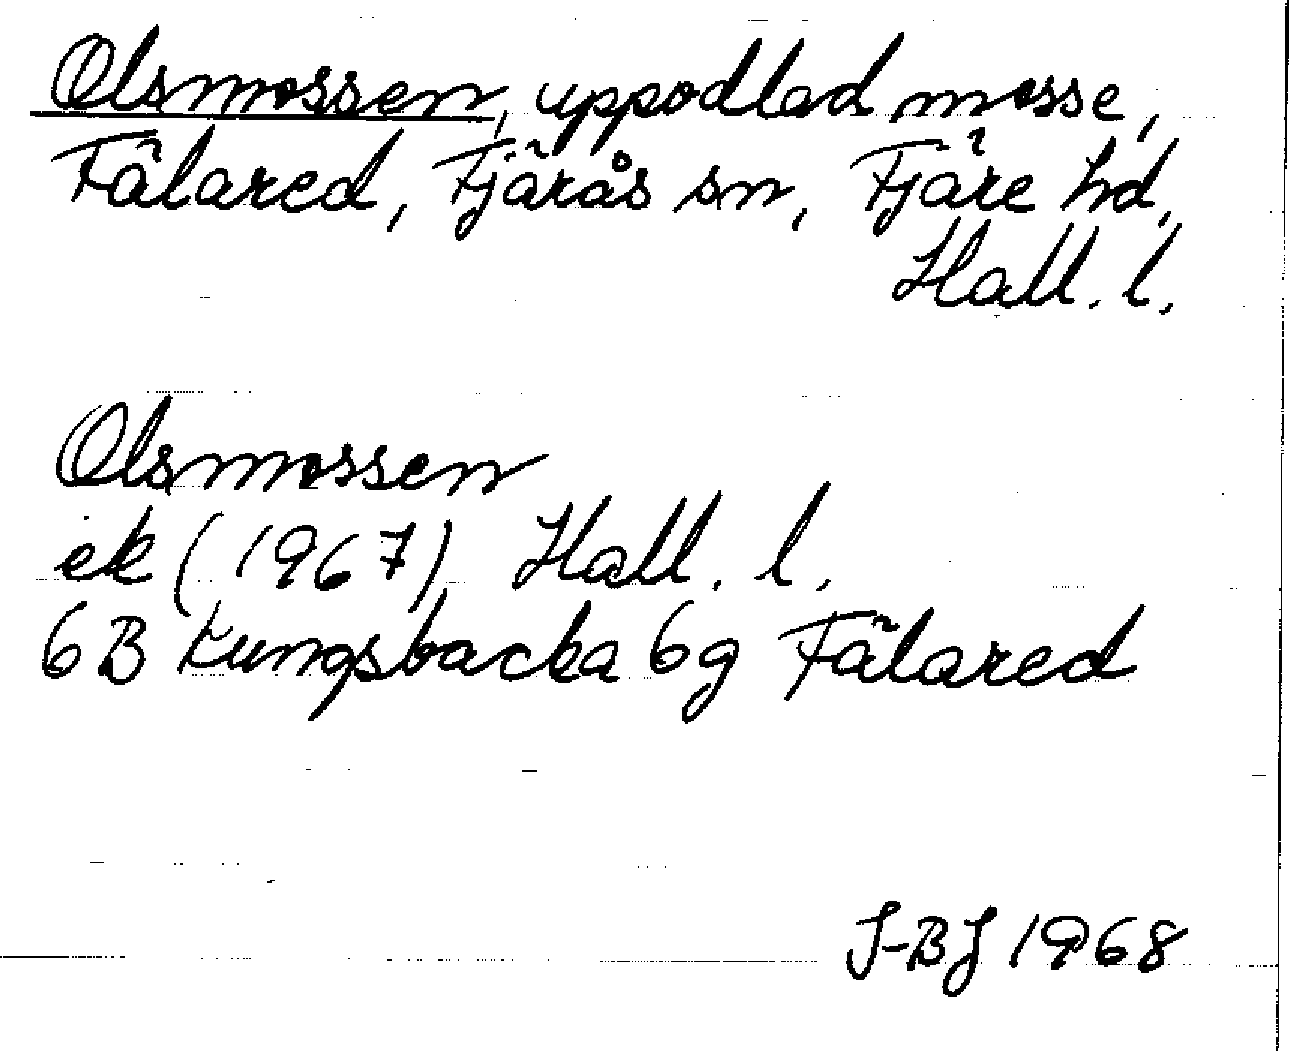 Olsmossen, uppodlad mosse,
Fälared, Fjärås sn, Fjäre hd,
Hall. l.
Olsmossen
ek (1967) Hall. l.
6B Kungsbacka 6g Fälared
J-BJ 1968